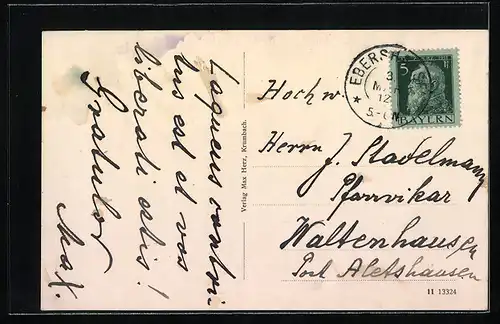 Laqueus contri
tus est et vos
liberati estis!
Gratulor
Max.
Verlag Max Herz, Krumbach.
EBERSH
3
MAR
12
5-6N
5
BAYERN
Hochw.
Herrn J. Stadelmann
Pfarrvikar
Waltenhausen
Post Aletshausen
11 13324